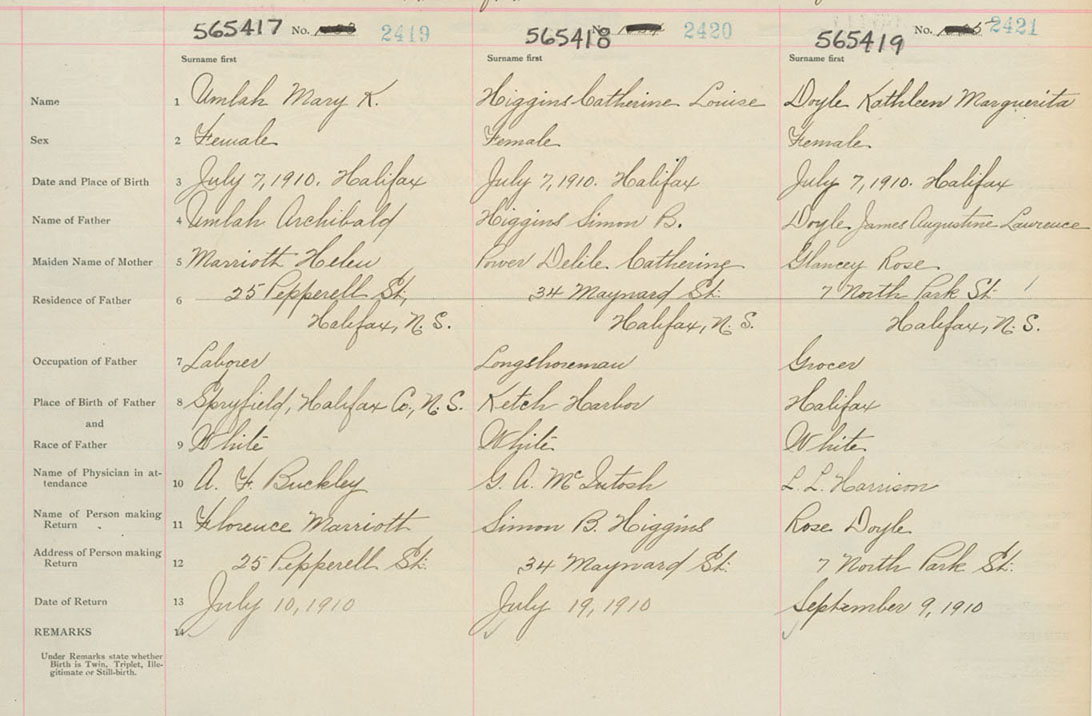 565417 No. 2419 565418 No. 2420 565419 No. 2421
Surname first Surname first Surname first
Name 1 Umlah Mary K. Higgins Catherine Louise Doyle Kathleen Marguerita
Sex 2 Female Female Female
Date and Place of Birth 3 July 7, 1910. Halifax July 7, 1910. Halifax July 7, 1910. Halifax
Name of Father 4 Umlah Archibald Higgins Simon B. Doyle James Augustine Lawrence
Maiden Name of Mother 5 Marriott Helen Power Delile Catherine Glancey Rose
Residence of Father 6 25 Pepperell St, 34 Maynard St. 7 North Park St.
Halifax, N. S. Halifax, N. S. Halifax, N. S.
Occupation of Father 7 Laborer Longshoreman Grocer
Place of Birth of Father 8 Spryfield, Halifax Co, N. S. Ketch Harbor Halifax
and
Race of Father 9 White White White
Name of Physician in at-
tendance 10 A. F. Buckley G. A. McIntosh L. L. Harrison
Name of Person making
Return 11 Florence Marriott Simon B. Higgins Rose Doyle
Address of Person making
Return 12 25 Pepperell St. 34 Maynard St. 7 North Park St.
Date of Return 13 July 10, 1910 July 19, 1910 September 9, 1910
REMARKS 14
Under Remarks state whether
Birth is Twin, Triplet, Ille-
gitimate or Still-birth.